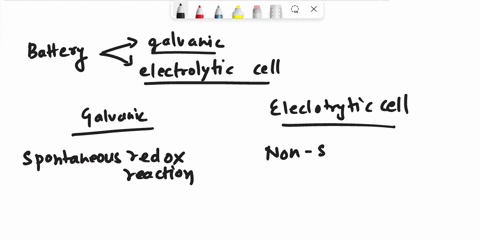 Battery
galvanic
electrolytic cell
Galvanic
Eleclotrytic cell
Spontaneous redox
reaction
Non-S